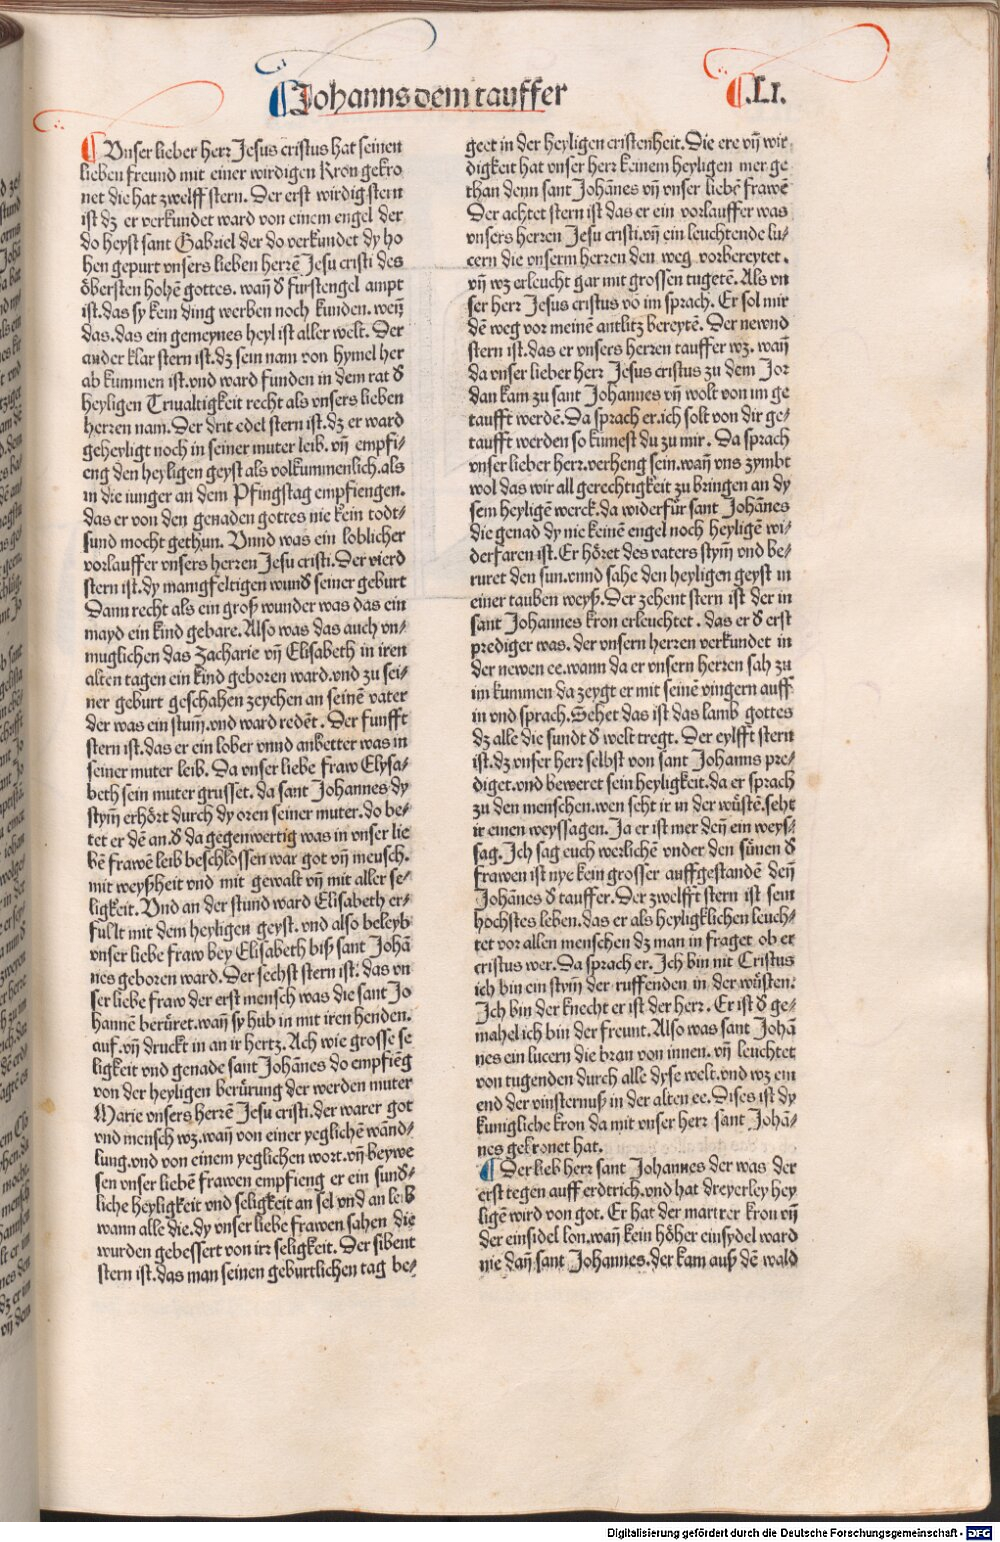 Johanns dem tauffer
.LI.
Unser lieber herr Jesus cristus hat seinen
lieben freund mit einer wirdigen Kron gekro
net die hat zwelff stern. Der erst wirdig stern
ist dz er verkundet ward von einem engel der
do heyst sant Gabriel der do verkundet dy ho
hen gepurt vnsers lieben herrē Jesu cristi des
öbersten hohē gottes. wañ d̄ fürstengel ampt
ist. das sy kein ding werben noch kunden. weñ
das. das ein gemeynes heyl ist aller welt. Der
ander klar stern ist. dz sein nam von hymel her
ab kummen ist. vnd ward funden in dem rat d̄
heyligen Triualtigkeit recht als vnsers lieben
herren nam. Der drit edel stern ist. dz er ward
geheyligt noch in seiner muter leib. vñ empfi-
eng den heyligen geyst als volkummenlich. als
in die iunger an dem Pfingstag empfiengen.
das er von den genaden gottes nie kein todt-
sund mocht gethun. Vnnd was ein loblicher
vorlauffer vnsers herren Jesu cristi. Der vierd
stern ist. dy manigfeltigen wund̄ seiner geburt
Dann recht als ein groß wunder was das ein
mayd ein kind gebare. Also was das auch vn-
muglichen das Zacharie vñ Elisabeth in iren
alten tagen ein kind geboren ward. vnd zu sei-
ner geburt geschahen zeychen an seinē vater
der was ein stum̄. vnd ward redēt. Der funfft
stern ist. das er ein lober vnnd anbetter was in
seiner muter leib. Da vnser liebe fraw Elysa-
beth sein muter grusset. da sant Johannes dy
stym̄ erhört durch dy oren seiner muter. do be-
tet er dē an. d̄ da gegenwertig was in vnser lie
bē frawē leib beschlossen war got vñ mensch.
mit weyßheit vnd mit gewalt vñ mit aller se-
ligkeit. Vnd an der stund ward Elisabeth er-
fullt mit dem heyligen geyst. vnd also beleyb
vnser liebe fraw bey Elisabeth biß sant Johā
nes geboren ward. Der sechst stern ist. das vn
ser liebe fraw der erst mensch was die sant Jo
hannē berüret. wañ sy hub in mit iren henden.
auf. vñ druckt in an ir hertz. Ach wie grosse se
ligkeit vnd genade sant Johānes do empfiēg
von der heyligen berürung der werden muter
Marie vnsers herrē Jesu cristi. der warer got
vnd mensch wz. wañ von einer yeglichē wand-
lung. vnd von einem yeglichen wort. vñ beywe
sen vnser liebē frawen empfieng er ein sund̄-
liche heyligkeit vnd seligkeit an sel vnd an leib
wann alle die. dy vnser liebe frawen sahen die
wurden gebessert von irr seligkeit. Der sibent
stern ist. das man seinen geburtlichen tag be-
geet in der heyligen cristenheit. Die ere vñ wir
digkeit hat vnser herr keinem heyligen mer ge
than denn sant Johānes vñ vnser liebē frawē
Der achtet stern ist das er ein vorlauffer was
vnsers herren Jesu cristi. vñ ein leuchtende lu-
cern die vnserm herren den weg vorbereytet.
vñ wz erleucht gar mit grossen tugetē. Als vn
ser herr Jesus cristus vō im sprach. Er sol mir
dē weg vor meinē antlitz bereytē. Der newnd
stern ist. das er vnsers herren tauffer wz. wañ
da vnser lieber herr Jesus cristus zu dem Jor
dan kam zu sant Johannes vñ wolt von im ge
taufft werdē. Da sprach er. ich solt von dir ge-
taufft werden so kumest du zu mir. Da sprach
vnser lieber herr. verheng sein. wañ vns zymbt
wol das wir all gerechtigkeit zu bringen an dy
sem heyligē werck. da widerfur sant Johānes
die genad dy nie keinē engel noch heyligē wi-
derfaren ist. Er höret des vaters stym̄ vnd be-
ruret den sun. vnnd sahe den heyligen geyst in
einer tauben weyß. Der zehent stern ist der in
sant Johannes kron erleuchtet. das er d̄ erst
prediger was. der vnsern herren verkundet in
der newen ee. wann da er vnsern herren sah zu
im kummen da zeygt er mit seinē vingern auff
in vnd sprach. Sehet das ist das lamb gottes
dz alle die sundt d̄ welt tregt. Der eylfft stern
ist. dz vnser herr selbst von sant Johanns pre-
diget. vnd beweret sein heyligkeit. da er sprach
zu den menschen. wen seht ir in der wüstē. seht
ir einen weyssagen. Ja er ist mer deñ ein weys-
sag. Ich sag euch werlichē vnder den sünen d̄
frawen ist nye kein grosser auffgestandē deñ
Johānes d̄ tauffer. Der zwelfft stern ist sein
hochstes leben. das er als heyligklichen leuch-
tet vor allen menschen dz man in fraget ob er
cristus wer. Da sprach er. Ich bin nit Cristus
ich bin ein stym̄ der ruffenden in der wüsten.
Ich bin der knecht er ist der herr. Er ist d̄ ge-
mahel ich bin der freunt. Also was sant Johā
nes ein lucern die bran von innen. vñ leuchtet
von tugenden durch alle dyse welt. vnd wz ein
end der vinsternuß in der alten ee. Dises ist dy
kunigliche kron da mit vnser herr sant Johā-
nes gekronet hat.
Der lieb herr sant Johannes der was der
erst tegen auff erdtrich. vnd hat dreyerley hey
ligē wird von got. Er hat der martrer kron vñ
der einsidel lon. wañ kein höher einsydel ward
nie dañ sant Johannes. der kam auß dē wald
Digitalisierung gefördert durch die Deutsche Forschungsgemeinschaft - DFG